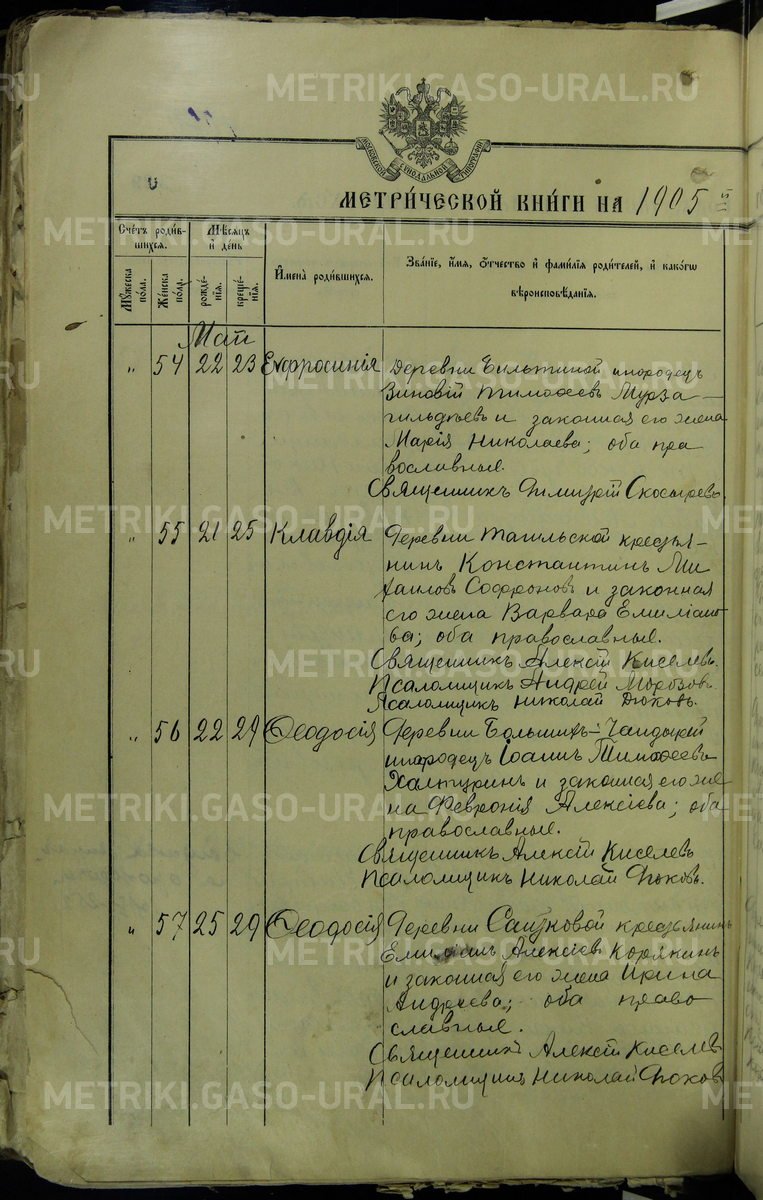 METRIKI.GASO-URAL.RU
МОСКОВСКОЙ СѴНОДАЛЬНОЙ ТИПОГРАФІИ
МЕТРИ́ЧЕСКОЙ КНИ́ГИ НА 1905
Сче́тъ роди́в-
шихся.
Мѣ́сяцъ
и де́нь
Мꙋ́жеска по́ла.
Же́нска по́ла.
рожде́нія.
креще́нія.
И҆мена̀ роди́вшихся.
Зва́ніе, и҆́мя, ѻ҆́тчество и҆ фами́лія роди́телей, и҆ како́гѡ
вѣроисповѣ́данія.
Май
„ 54 22 23 Евфросинія Деревни инородецъ
Зиновій Тимофеевъ Мурза-
гильдѣевъ и законная его жена
Марія Николаева; оба пра
вославные.
Священникъ Димитрій Скосыревъ.
„ 55 21 25 Клавдія Деревни Тагильской крестья-
нинъ Константинъ Ми
хаиловъ Софроновъ и законная
его жена Варвара Емиліано-
ва; оба православные.
Священникъ Алексій Киселевъ.
Псаломщикъ Андрей Морозовъ.
Псаломщикъ Николай Дюковъ.
„ 56 22 29 Ѳеодосія Деревни
инородецъ Іоаннъ Тимофеевъ
Халтуринъ и законная его же
на Февронія Алексіева; оба
православные.
Священникъ Алексій Киселевъ
Псаломщикъ Николай Дюковъ.
„ 57 25 29 Ѳеодосія Деревни крестьянинъ
Емиліанъ Алексіевъ Корякинъ
и законная его жена Ирина
Андреева; оба право
славные.
Священникъ Алексій Киселевъ
Псаломщикъ Николай Дюковъ